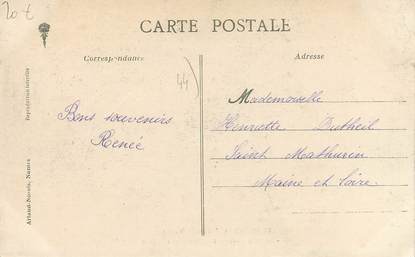 20 €
CARTE POSTALE
Correspondance
Adresse
44
Bons souvenirs
Renée
Mademoiselle
Henriette Dutheil
Saint Mathurin
Maine et Loire
Reproduction interdite
Artaud-Nozais, Nantes